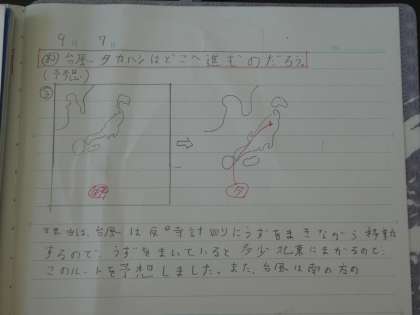 9月 7日
台風 タカハンはどこへ進むのだろう。
(予想)
理由は、台風は反時計回りにうずをまきながら移動
するので、うずをまいていると多少北東にまがるので、
このルートを予想しました。また、台風は南の方の